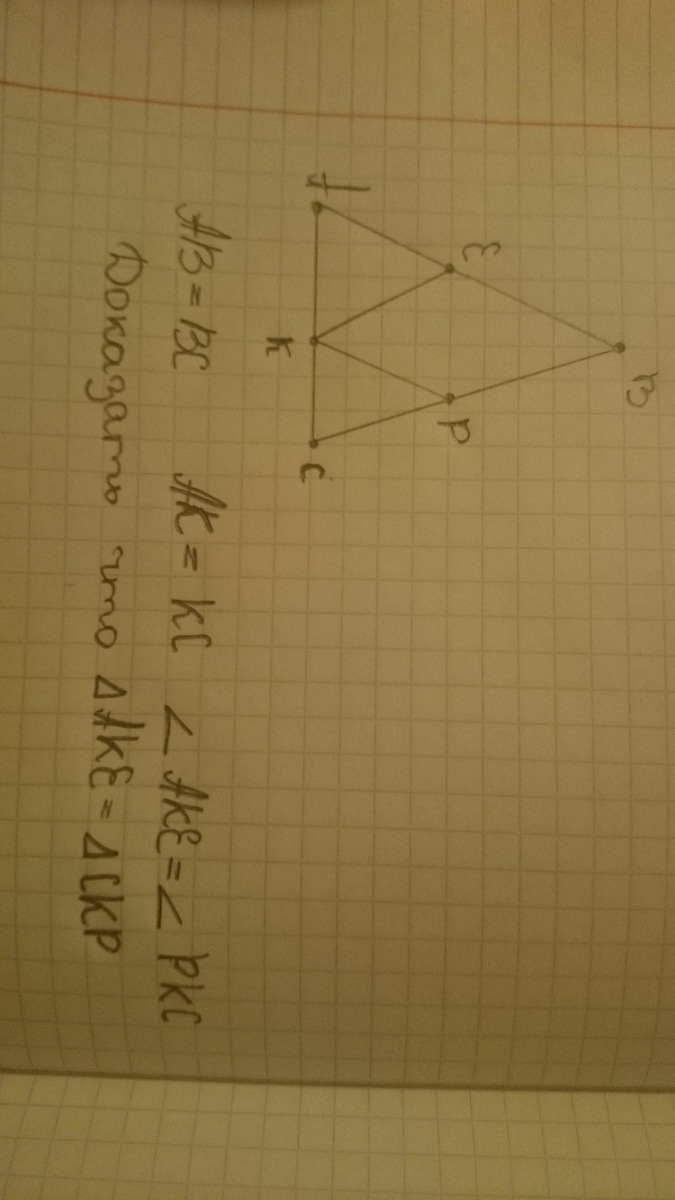 B
E
P
A
K
C
AB = BC AK = KC ∠ AKE = ∠ PKC
Доказать что Δ AKE = Δ CKP